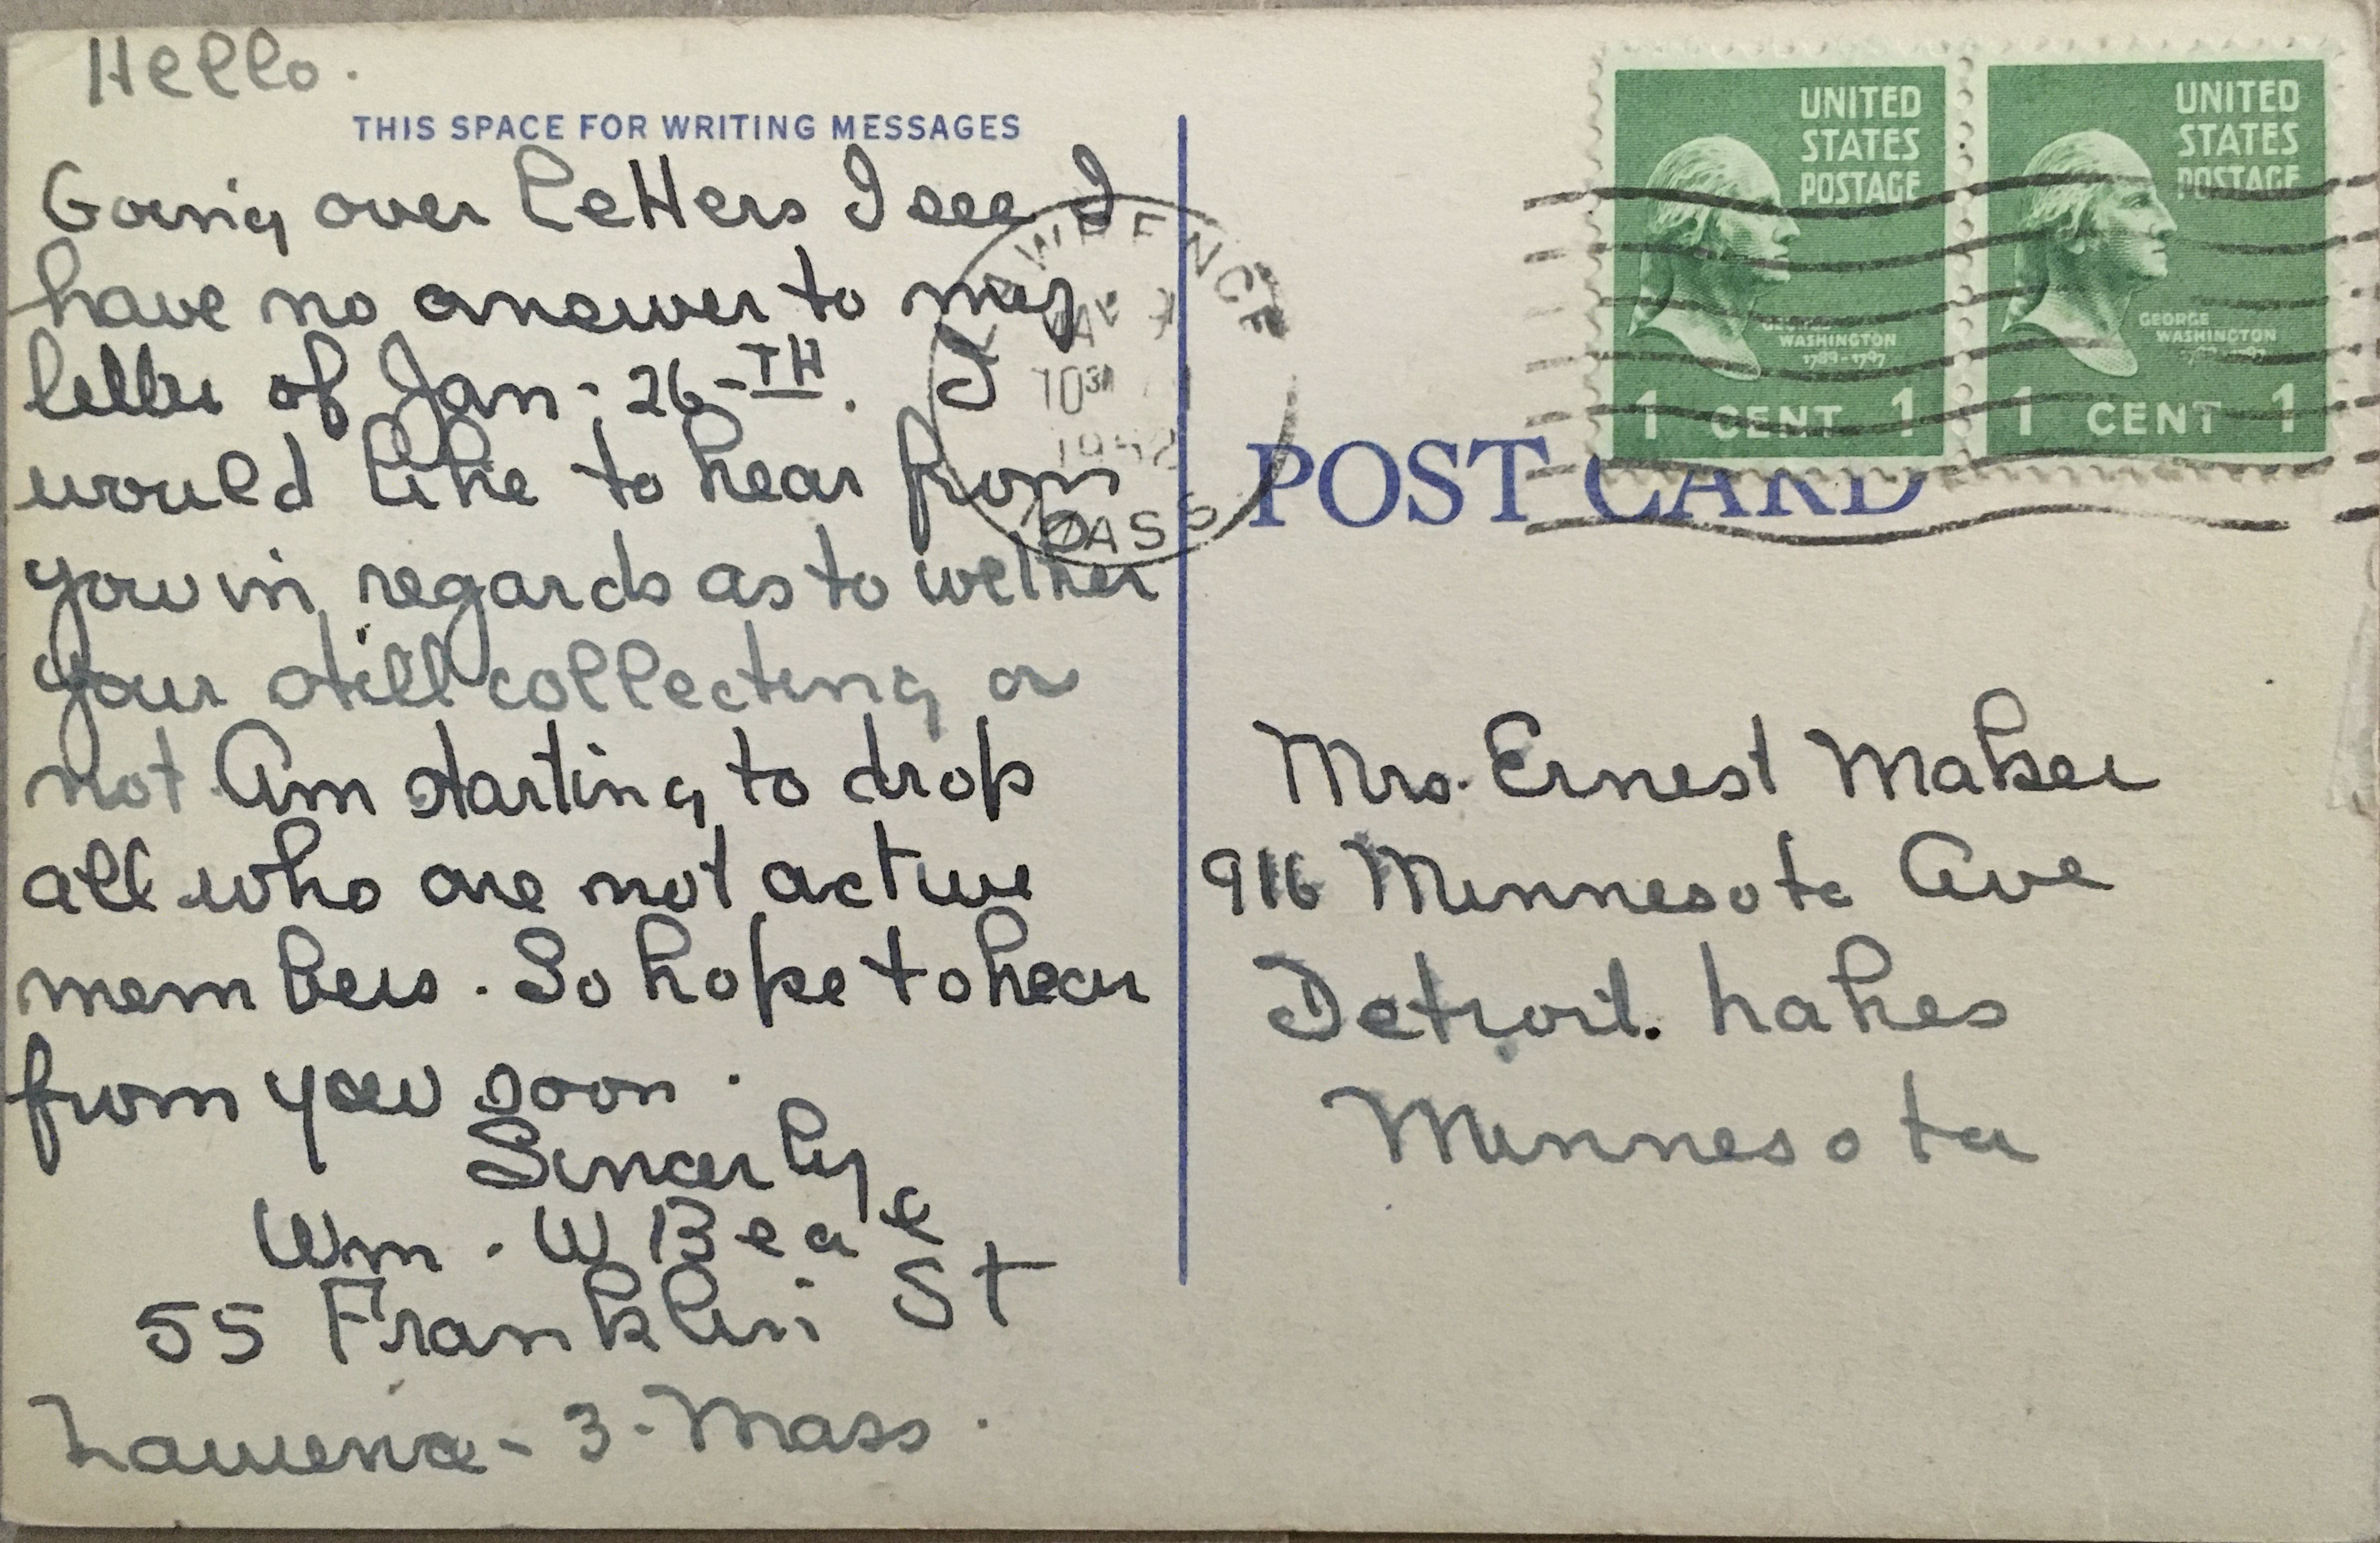 Hello.
THIS SPACE FOR WRITING MESSAGES
Going over letters I see I
have no answer to my
letter of Jan - 26 - TH. I
would like to hear from
you in regards as to wether
your still collecting or
not Am starting to drop
all who are not active
members. So hope to hear
from you soon.
Sincerly
Wm. W
55 Franklin St
Lawrence - 3 - Mass.
LAWRENCE
10 30
1952
MASS
UNITED
STATES
POSTAGE
GEORGE
WASHINGTON
1789-1797
1 CENT 1
UNITED
STATES
POSTAGE
GEORGE
WASHINGTON
1 CENT 1
POST CARD
Mrs. Ernest Maker
916 Minnesota Ave
Detroit. Lakes
Minnesota